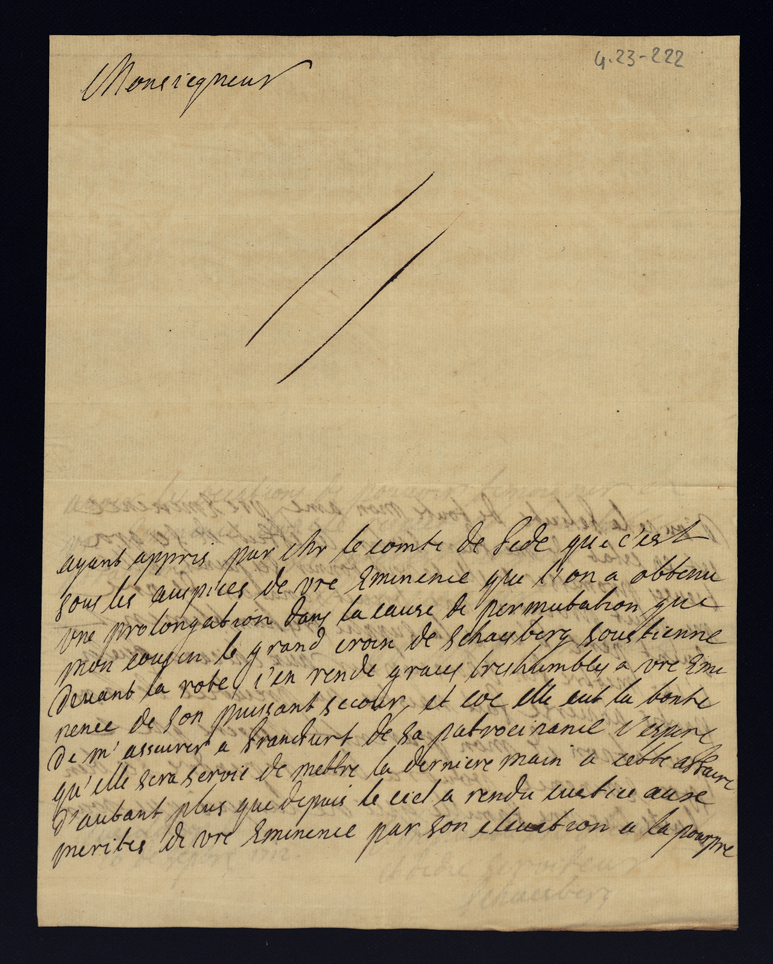 4.23-222
Monsiegneur
ayant appris par Mr le comte de que c'est
sous les auspices de vre Eminence que l'on a obtenu
vne prolongation dans la cause de permutation que
mon cousin le grand croix de Schaesberg soustienne
devant la rote, j'en rende graces treshumbles a vre Emi
nence de son puissant secour, et coe elle eut la bonte
de m'assurer a francfurt de sa patrocinance j'espere
qu'elle sera servie de mettre la derniere main a cette affaire
d'autant plus que depuis le ciel a rendu iustice aux
merites de vre Eminence par son elevation a la pourpre